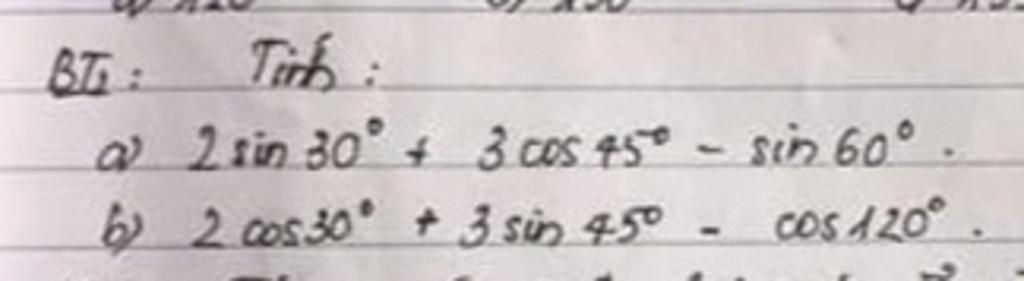 BT1: Tính:
a) 2 sin 30° + 3 cos 45° - sin 60°.
b) 2 cos 30° + 3 sin 45° - cos 120°.